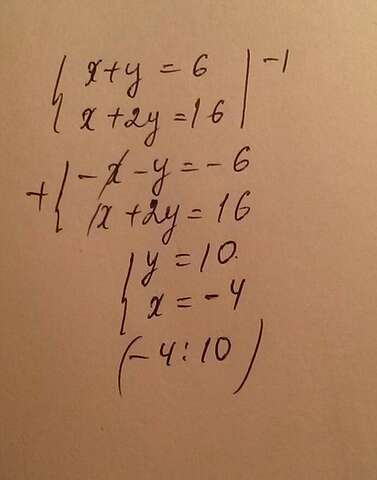 { x + y = 6 | -1
{ x + 2y = 16 |
+ { -x - y = -6
{ x + 2y = 16
{ y = 10.
{ x = -4
(-4 : 10)